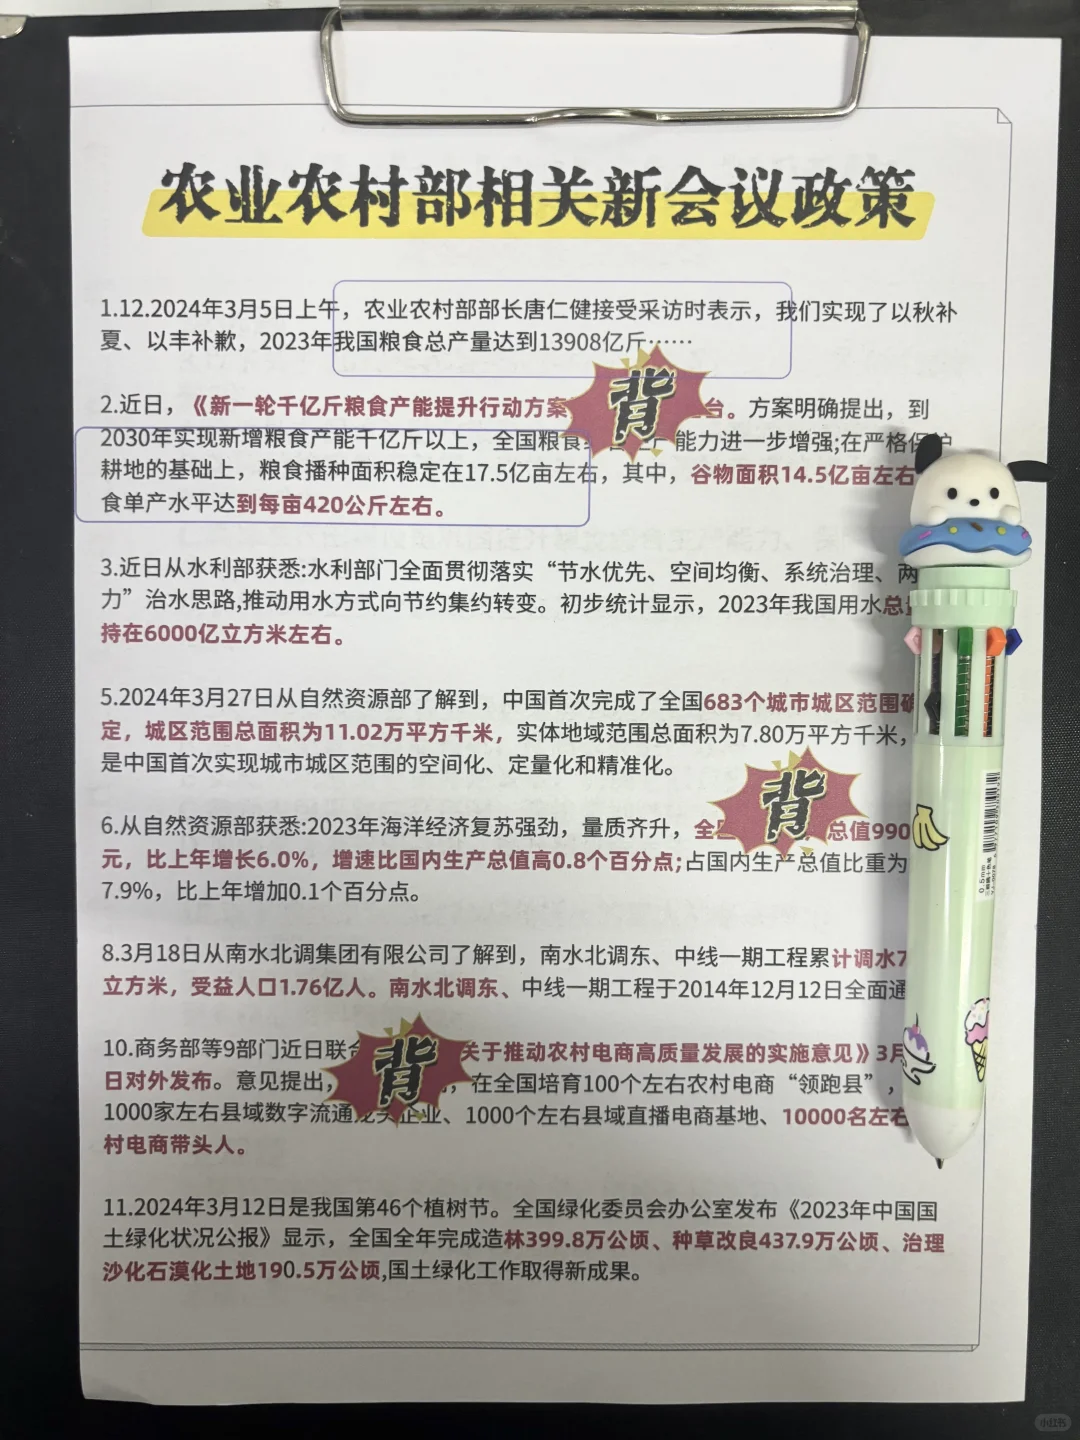 农业农村部相关新会议政策
1.12.2024年3月5日上午，农业农村部部长唐仁健接受采访时表示，我们实现了以秋补
夏、以丰补歉，2023年我国粮食总产量达到13908亿斤……
背
2.近日，《新一轮千亿斤粮食产能提升行动方案 台。方案明确提出，到
2030年实现新增粮食产能千亿斤以上，全国粮食 能力进一步增强;在严格保护
耕地的基础上，粮食播种面积稳定在17.5亿亩左右，其中，谷物面积14.5亿亩左右
食单产水平达到每亩420公斤左右。
3.近日从水利部获悉:水利部门全面贯彻落实“节水优先、空间均衡、系统治理、两
力”治水思路,推动用水方式向节约集约转变。初步统计显示，2023年我国用水总
持在6000亿立方米左右。
5.2024年3月27日从自然资源部了解到，中国首次完成了全国683个城市城区范围确
定，城区范围总面积为11.02万平方千米，实体地域范围总面积为7.80万平方千米，
是中国首次实现城市城区范围的空间化、定量化和精准化。
背
6.从自然资源部获悉:2023年海洋经济复苏强劲，量质齐升，全 总值990
元，比上年增长6.0%，增速比国内生产总值高0.8个百分点;占国内生产总值比重为
7.9%，比上年增加0.1个百分点。
8.3月18日从南水北调集团有限公司了解到，南水北调东、中线一期工程累计调水7
立方米，受益人口1.76亿人。南水北调东、中线一期工程于2014年12月12日全面通
背
10.商务部等9部门近日联合 关于推动农村电商高质量发展的实施意见》3月
日对外发布。意见提出， ，在全国培育100个左右农村电商“领跑县”，
1000家左右县域数字流通龙头企业、1000个左右县域直播电商基地、10000名左右
村电商带头人。
11.2024年3月12日是我国第46个植树节。全国绿化委员会办公室发布《2023年中国国
土绿化状况公报》显示，全国全年完成造林399.8万公顷、种草改良437.9万公顷、治理
沙化石漠化土地190.5万公顷,国土绿化工作取得新成果。
0.5mm
小红书